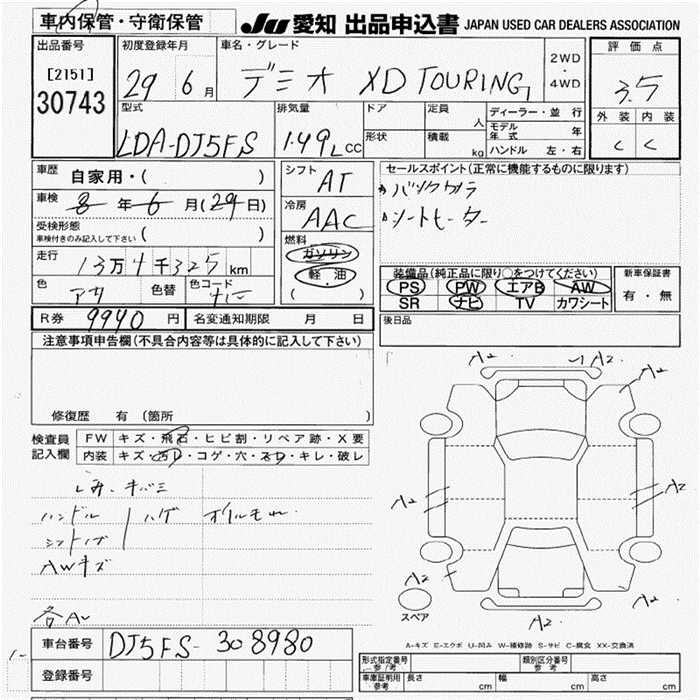 車内保管・守衛保管
JU 愛知 出品申込書 JAPAN USED CAR DEALERS ASSOCIATION
出品番号
[2151]
30743
初度登録年月
29 6月
車名・グレード
デミオ XD TOURING
2WD
・
4WD
評価点
3.5
外装 内装
C C
型式
LDA-DJ5FS
排気量
1.49L CC
ドア
形状
定員 人
積載 kg
ディーラー・並行
モデル年式 年
ハンドル 左・右
車歴 自家用・( )
車検 8年6月(29日)
受検形態
車検付きのみ記入して下さい ( )
走行 13万4千325km
色 アサ 色替 色コード
シフト AT
冷房 AAC
燃料
ガソリン
軽・油
( )
セールスポイント(正常に機能するものに限ります)
バックカメラ
シートヒーター
装備品(純正品に限り○をつけてください)
PS PW エアB AW
SR ナビ TV カワシート
新車保証書
有・無
R券 9940円 名変通知期限 月 日
後日品
注意事項申告欄(不具合内容等は具体的に記入して下さい)
修復歴 有(箇所
検査員
記入欄
FW キズ・飛石・ヒビ割・リペア跡・X要
内装 キズ・汚レ・コゲ・穴・スレ・キレ・破レ
シミ・キバミ
ハンドル ハゲ オイルモレ
シフトノブ
AWキズ
各A2
A2 A2 A2
A2 A2
A2 A2 A2
スペア
A-キズ E-エクボ U-凹み W-補修跡 S-サビ C-腐食 XX-交換済
車台番号 DJ5FS-308980
登録番号
形式指定番号 参考 類別区分番号 参考
車庫証明用 参考 長さ cm 幅 cm 高さ cm